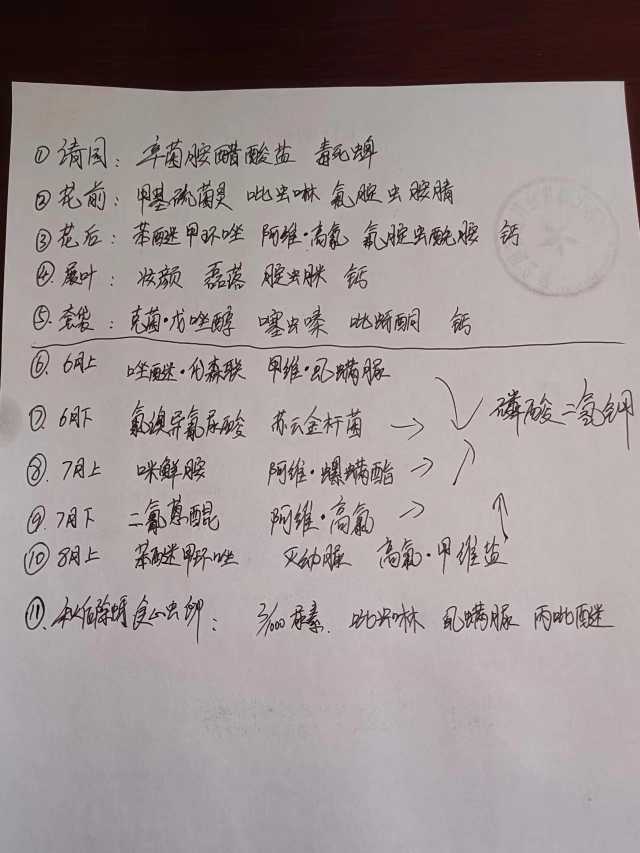 ① 清园： 辛菌胺醋酸盐 毒死蜱
② 花前： 甲基硫菌灵 吡虫啉 氟啶虫胺腈
③ 花后： 苯醚甲环唑 阿维·高氯 氟啶虫酰胺 钙
④ 展叶： 妆颜 磊落 啶虫脒 钙
⑤ 套袋： 克菌·戊唑醇 噻虫嗪 吡蚜酮 钙
⑥ 6月上 唑醚·代森联 甲维·虱螨脲
⑦ 6月下 氯溴异氰尿酸 苏云金杆菌 → 磷酸二氢钾
⑧ 7月上 咪鲜胺 阿维·螺螨酯 →
⑨ 7月下 二氰蒽醌 阿维·高氯 →
⑩ 8月上 苯醚甲环唑 灭幼脲 高氯·甲维盐
⑪ 虫卵： 3/1000尿素. 吡虫啉 虱螨脲 丙吡醚